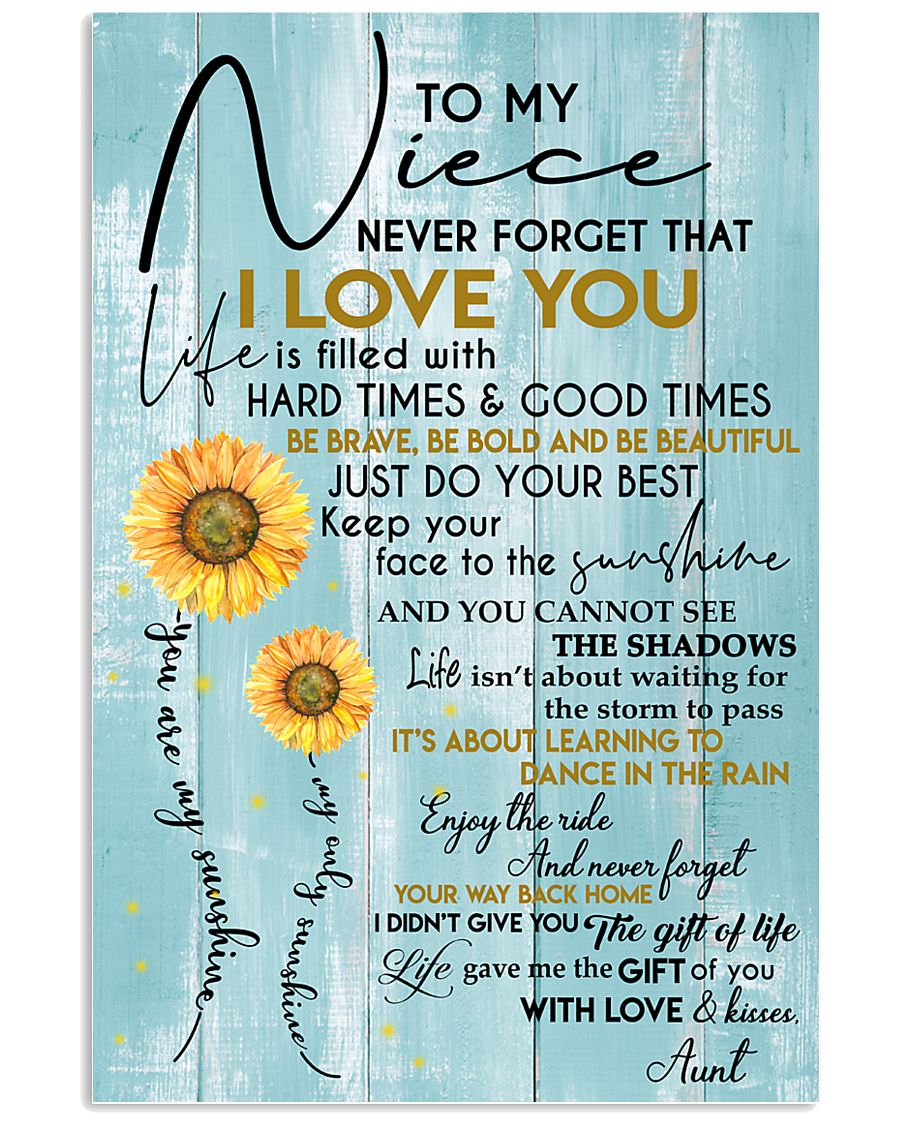 TO MY
Niece
NEVER FORGET THAT
I LOVE YOU
Life is filled with
HARD TIMES & GOOD TIMES
BE BRAVE, BE BOLD AND BE BEAUTIFUL
JUST DO YOUR BEST
Keep your
face to the sunshine
AND YOU CANNOT SEE
THE SHADOWS
Life isn't about waiting for
the storm to pass
IT'S ABOUT LEARNING TO
DANCE IN THE RAIN
Enjoy the ride
And never forget
YOUR WAY BACK HOME
I DIDN'T GIVE YOU The gift of life
Life gave me the GIFT of you
WITH LOVE & kisses,
Aunt
you are my sunshine
my only sunshine